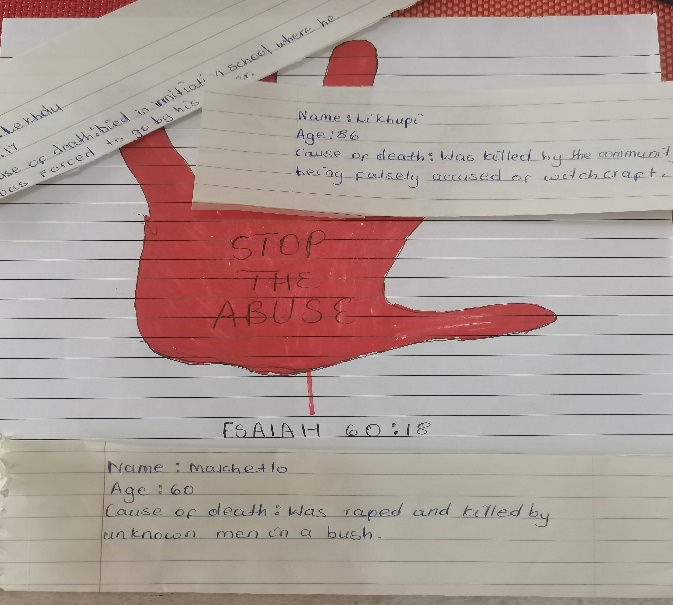 Lekhotu
:17
use of death: Died in innitiation school where he
was forced to go by his
Name: Likhupi
Age: 86
Cause of death: Was killed by the communit
being falsely accused of witchcraft.
STOP
THE
ABUSE
ESAIAH 60:18
Name: Makhetlo
Age: 60
Cause of death: Was raped and killed by
unknown men in a bush.